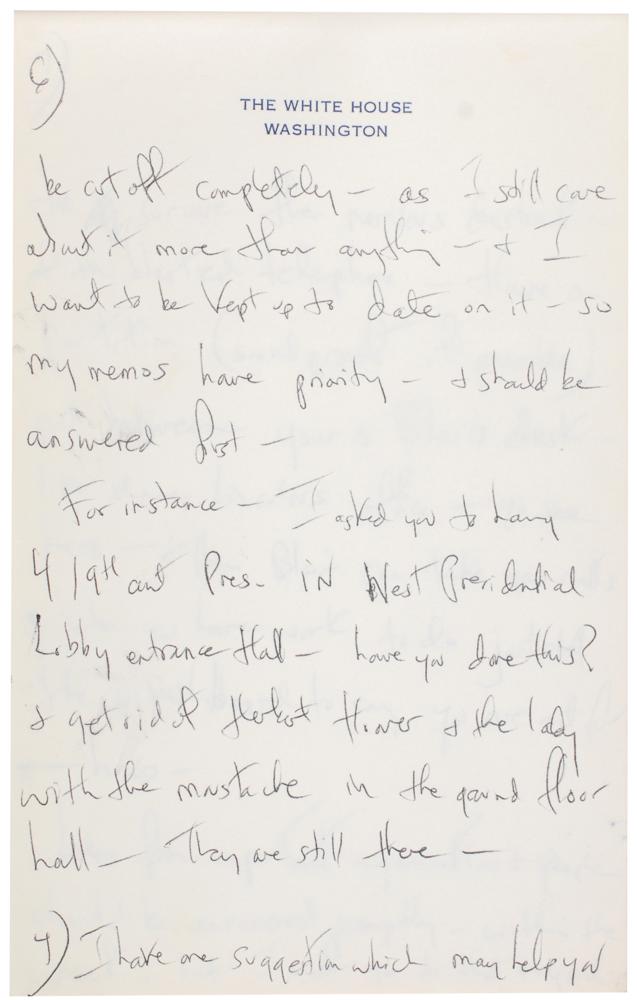 6)
THE WHITE HOUSE
WASHINGTON
be cut off completely — as I still care
about it more than anything — & I
want to be kept up to date on it — so
my memos have priority — & should be
answered first —
For instance — I asked you to hang
4 19th cent Pres. IN West Presidential
Lobby entrance Hall — have you done this?
& get rid of Herbert Hoover & the lady
with the mustache in the ground floor
hall — They are still there —
4) I have one suggestion which may help you